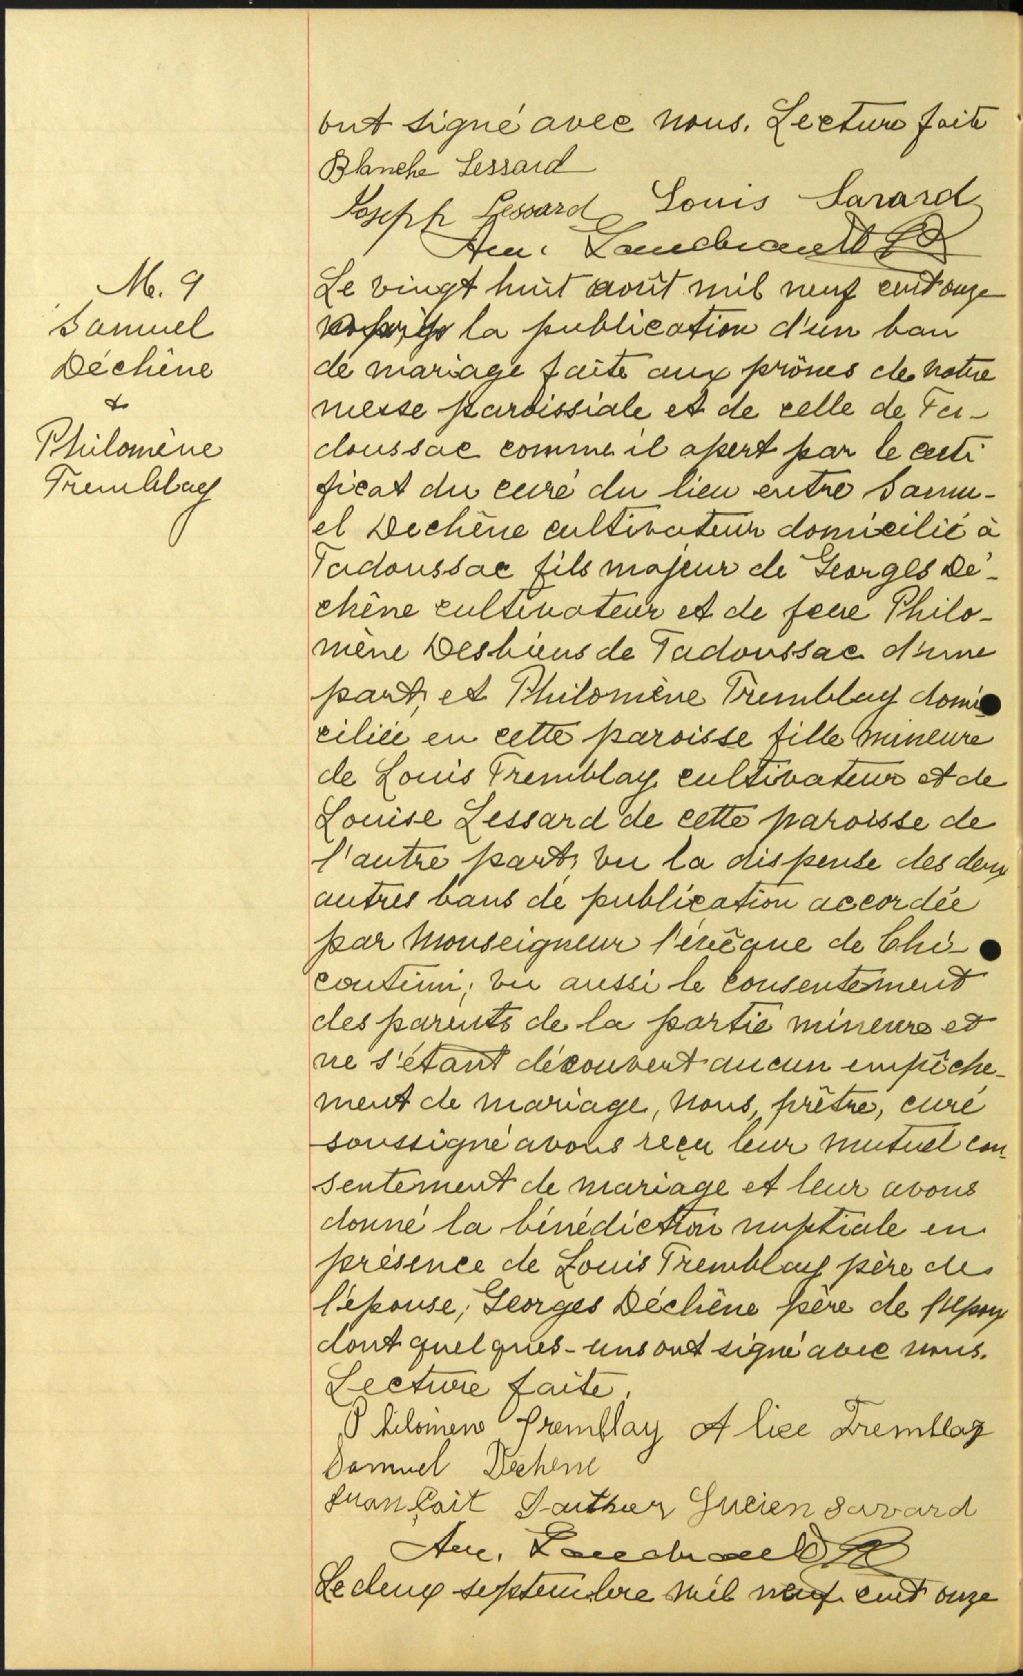 ont signé avec nous. Lecture faite
Blanche Lessard
Joseph Lessard Louis Savard
M. 9
Samuel
Déchêne
&
Philomène
Tremblay
Le vingt huit août mil neuf cent onze
la publication d'un ban
de mariage faite aux prônes de notre
messe paroissiale et de celle de Ta-
doussac comme il apert par le certi
ficat du curé du lieu entre Samu-
el Dechêne cultivateur domicilié à
Tadoussac fils majeur de Georges Dé-
chêne cultivateur et de feue Philo-
mène Desbiens de Tadoussac d'une
part, et Philomène Tremblay domi-
ciliée en cette paroisse fille mineure
de Louis Tremblay cultivateur et de
Louise Lessard de cette paroisse de
l'autre part; vu la dispense des deux
autres bans de publication accordée
par Monseigneur l'évêque de Chi-
coutimi; vu aussi le consentement
des parents de la partie mineure et
ne s'étant découvert aucun empêche-
ment de mariage, nous, prêtre, curé
soussigné avons reçu leur mutuel con-
sentement de mariage et leur avons
donné la bénédiction nuptiale en
présence de Louis Tremblay père de
l'épouse; Georges Déchêne père de l'époux
dont quelques-uns ont signé avec nous.
Lecture faite.
Philomène Tremblay Alice Tremblay
Samuel Dechene
Gauthier Lucien Savard
Le deux septembre mil neuf cent onze